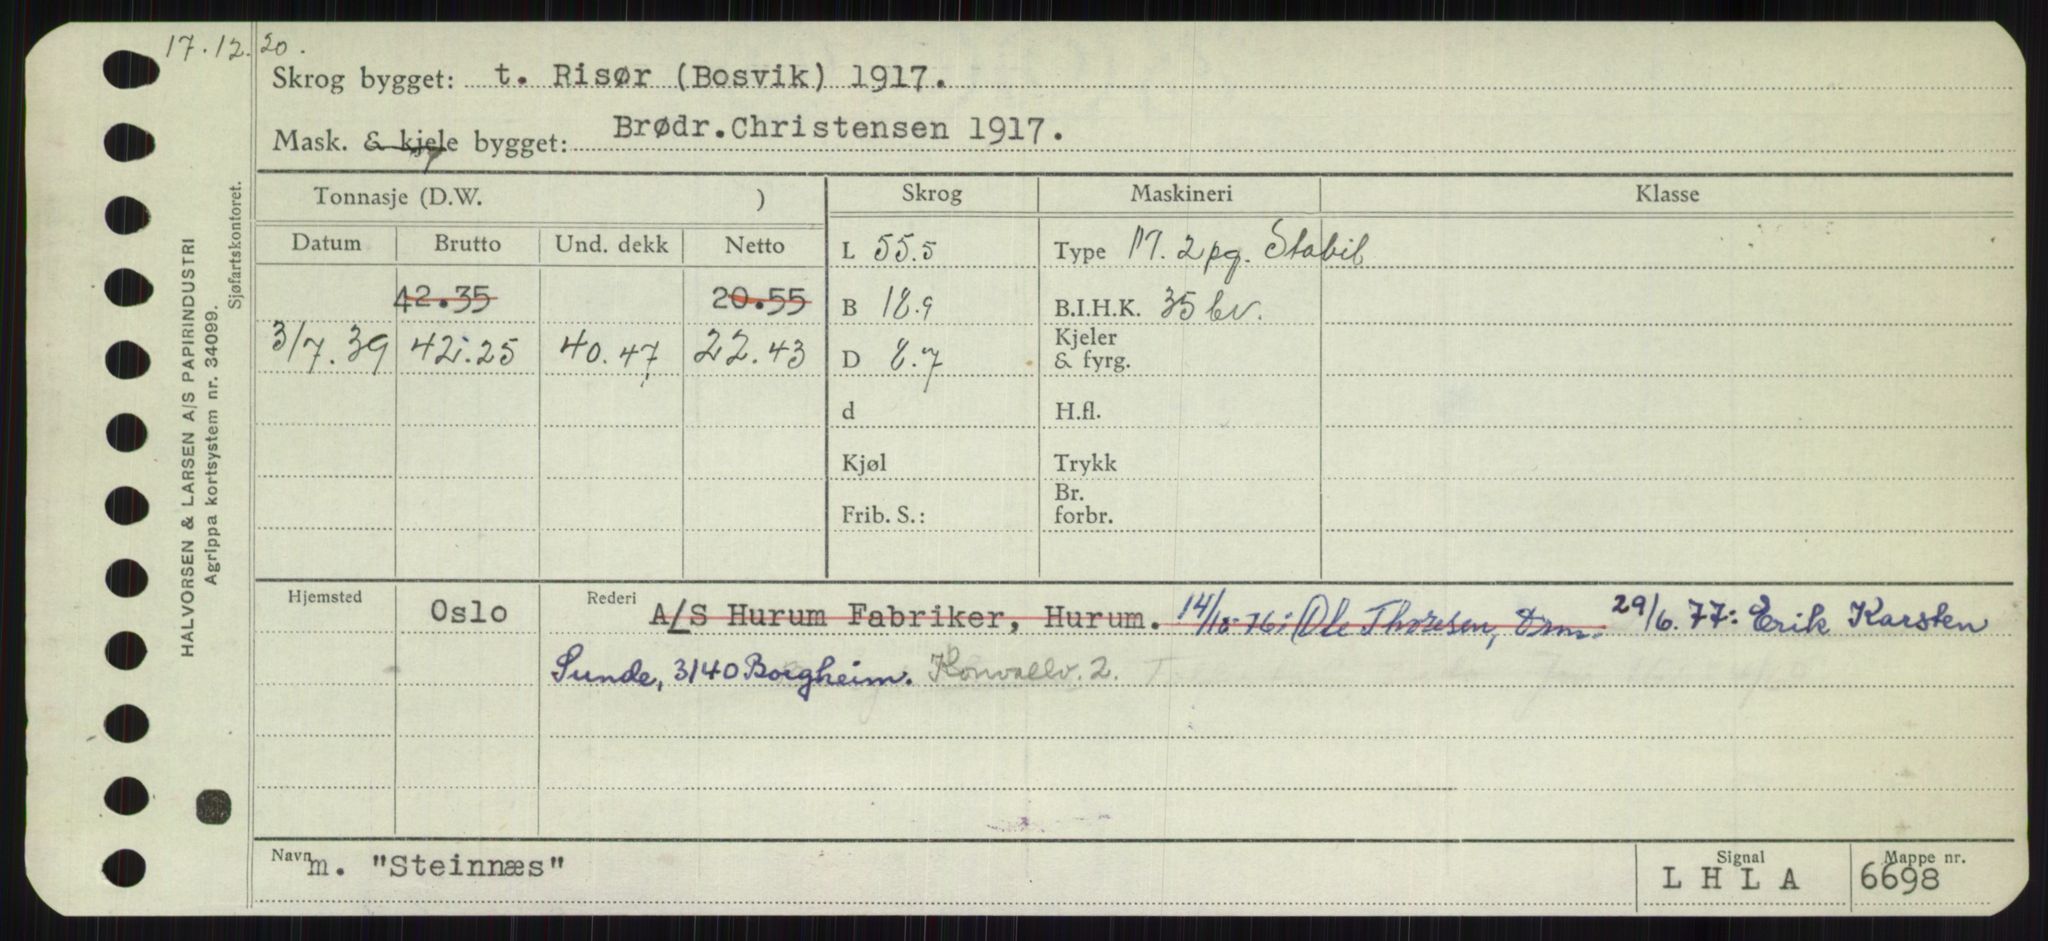 17.12.20.
Skrog bygget: t. Risør (Bosvik) 1917.
Mask. & kjele bygget: Brødr.Christensen 1917.
Tonnasje (D.W. ) Skrog Maskineri Klasse
Datum Brutto Und. dekk Netto L 55.5 Type M. 2pg. Stabil
42.35 20.55 B 18.9 B.I.H.K. 35 bv.
3/7.39 42.25 40.47 22.43 D 8.7 Kjeler & fyrg.
d H.fl.
Kjøl Trykk
Frib. S.: Br. forbr.
Hjemsted Oslo Rederi A/S Hurum Fabriker, Hurum. 14/10-76: Ole Thoresen, Drm. 29/6.77: Erik Karsten
Sunde, 3140 Borgheim. Konvallv. 2.
Navn m. "Steinnæs" Signal L H L A Mappe nr. 6698
HALVORSEN & LARSEN A/S PAPIRINDUSTRI
Agrippa kortsystem nr. 34099.
Sjøfartskontoret.